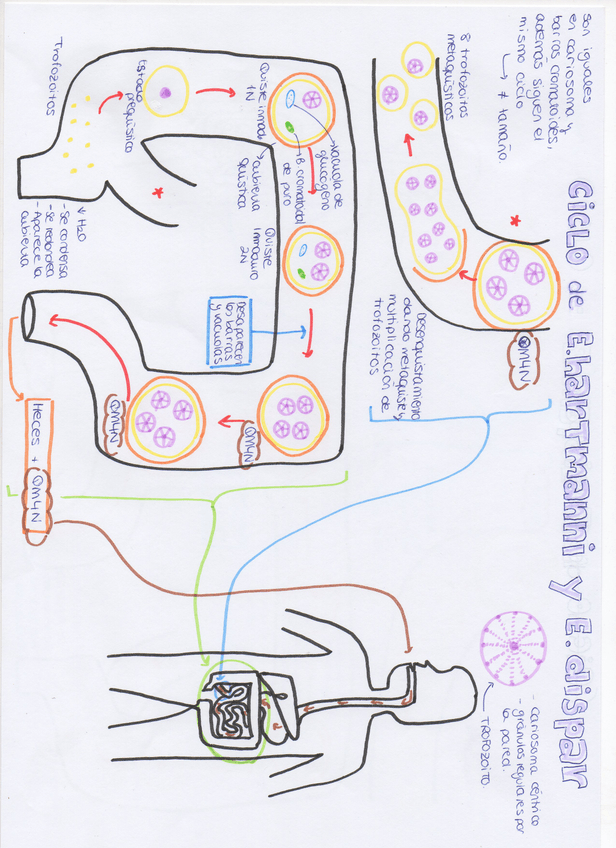 Ciclo de E.hartmanni y E.dispar
son iguales
en cariosoma y
barras cromatoides,
además siguen el
mismo ciclo
≠ tamaño.
*
8 trofozoitos
metaquísticos
QM4N
Desenquistamiento
dando metaquiste y
multiplicación de
trofozoitos
- cariosoma céntrico
- gránulos regulares por
la pared.
TROFOZOITO.
Trofozoitos
Estado
prequístico
↓ H2O
- Se condensa
- Se redondea
- Aparece la
cubierta
*
Quiste inmad
1N
vacuola de
glucógeno
B cromatoidal
de puro
cubierta
quística
Quiste
inmaduro
2N
Desaparecen
las barras
y vacuolas
QM4N
QM4N
Heces + QM4N